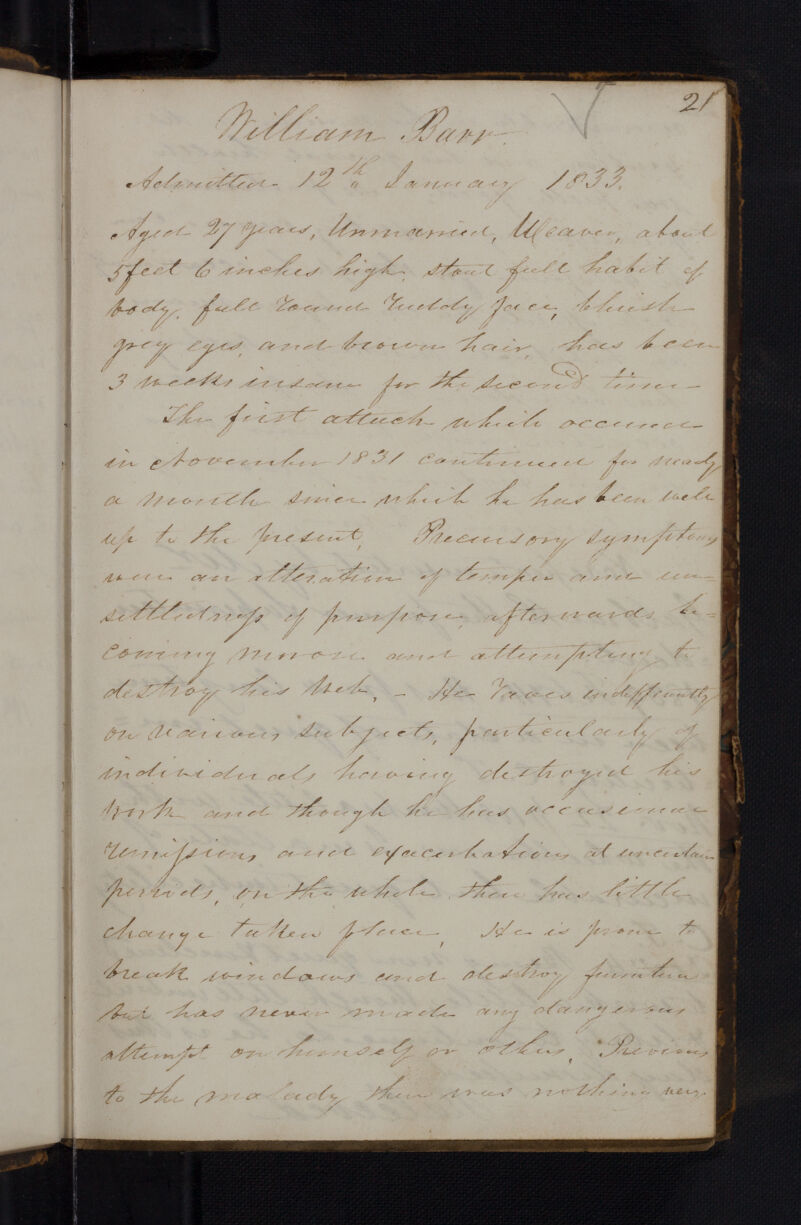 21
William Barr.
Admitted 12th January 1833.
Aged 27 years, Unmarried, Weaver, about
5 feet 6 inches high, stout full habit of
body, full round ruddy face, bluish
grey eyes, and brown hair, has been
3 weeks insane for the second time
The first attack which occurred
in November 1831 continued for nearly
a month since which he has been well
up to the present, Precursory symptoms
were an alteration of temper and un=
settledness of purpose, afterwards be=
coming morose and attempting to
destroy his Web. - He raves indifferently
on various subjects, particularly of
individuals having destroyed his
work and though he has occasional
remissions and exacerbations at uncertain
periods, on the whole there has little
change taken place, He is prone to
break windows and destroy furniture
but has never made any dangerous
attempt on himself or others. Previous
to the malady there was nothing very